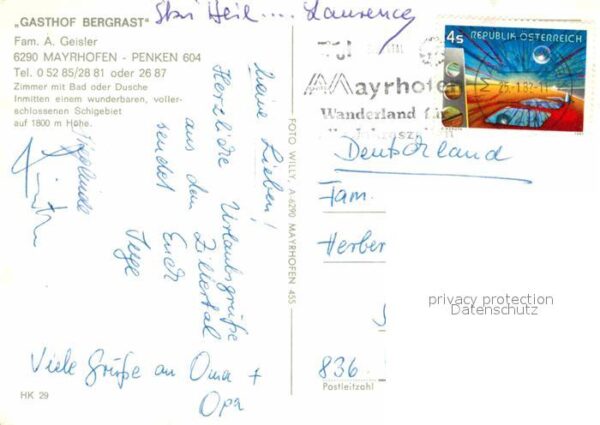 „GASTHOF BERGRAST"
Fam. A. Geisler
6290 MAYRHOFEN - PENKEN 604
Tel. 0 52 85/28 81 oder 26 87
Zimmer mit Bad oder Dusche
Inmitten einem wunderbaren, voller-
schlossenen Schigebiet
auf 1800 m Höhe.
Ski Heil....
Meine Lieben!
Herzliche Urlaubsgrüße
aus dem Zillertal
sendet Euch
Inge
Viele Grüße an Oma +
Opa
HK 29
FOTO WILLY, A-6290 MAYRHOFEN 455
4s
REPUBLIK ÖSTERREICH
Mayrhofen
Wanderland für
25.-1.82-11
Deutschland
Fam.
Herber
836
Postleitzahl
privacy protection
Datenschutz